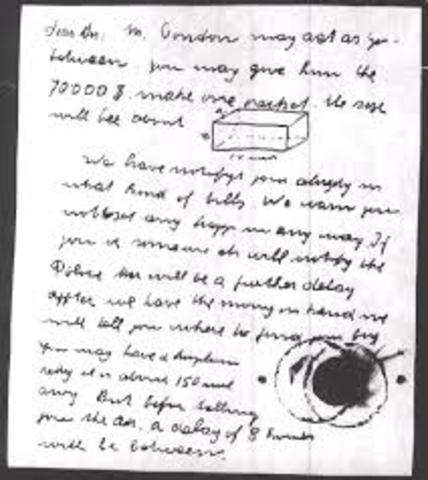 dear Sir, Mr. Condon may act as go-
between. you may give him the
70000 $. make one packet. the size
will bee about
We have notifyt you allredy in
what kind of bills. We warn you
not to set any trapp in any way. If
you or someone els will notify the
Police ther will be a further delay
affter we have the mony in hand we
will tell you where to find your boy
You may have a airplane
redy it is about 150 mil
awy. But befor telling
you the adr. a delay of 8 houers
will be between.